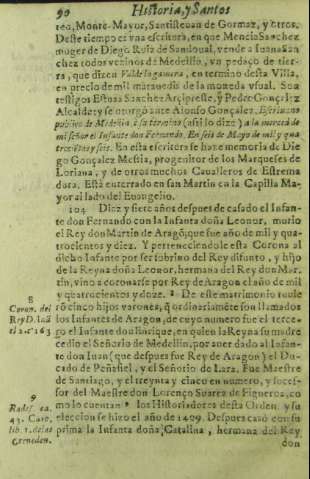 90 Historia, y Santos
reo, Monte-Mayor, Santisteuan de Gormaz, y otros.
Deste tiempo es vna escritura, en que Mencia Sanchez
muger de Diego Ruiz de Sandoual, vende a Iuana San
chez todos vezinos de Medellin, vn pedaço de tier-
ra, que dizen Valdelagamera, en termino desta Villa,
en precio de mil marauedis de la moneda vsual. Son
testigos Esteuan Sanchez Arcipreste, y Pedro Gonçalez
Alcalde; y se otorgó ante Alonso Gonçalez, Escriuano
publico de Medellin, è su termino (assi lo dize) a la merced de
mi señor el Infante don Fernando. En seis de Mayo de mil y qua
trocientos y seis. En esta escritura se haze memoria de Die
go Gonçalez Mesia, progenitor de los Marqueses de
Loriana, y de otros muchos Caualleros de Estrema
dura. Està enterrado en san Martin en la Capilla Ma-
yor al lado del Euangelio.
104 Diez y siete años despues de casado el Infan-
te don Fernando con la Infanta doña Leonor, murio
el Rey don Martin de Aragõ, que fue año de mil y qua-
trocientos y diez. Y perteneciendole esta Corona al
dicho Infante por ser sobrino del Rey difunto, y hijo
de la Reyna doña Leonor, hermana del Rey don Mar-
tin, vino a coronarse por Rey de Aragon el año de mil
y quatrocientos y doze. 8 De este matrimonio tuuie
rõ cinco hijos varones, q̃ ordinariamẽte son llamados
los Infantes de Aragon, de cuyo numero fue el terce-
ro el Infante don Enrique, en quien la Reyna su madre
cedio el Señorio de Medellin, por auer dado al Infan-
te don Iuan (que despues fue Rey de Aragon) el Du-
cado de Peñafiel, y el Señorio de Lara. Fue Maestre
de Santiago, y el treynta y cinco en numero, y succes-
sor del Maestre don Lorenço Suarez de Figueroa, co
mo lo cuentan 9 los Historiadores desta Orden, y su
eleccion se hizo el año de 1409. Despues casó con su
prima la Infanta doña Catalina, hermana del Rey
don
8
Coron. del
Rey D. Iuã
el 2. cº 163
9
Rades, ca.
43. Caro,
lib. 1. de las